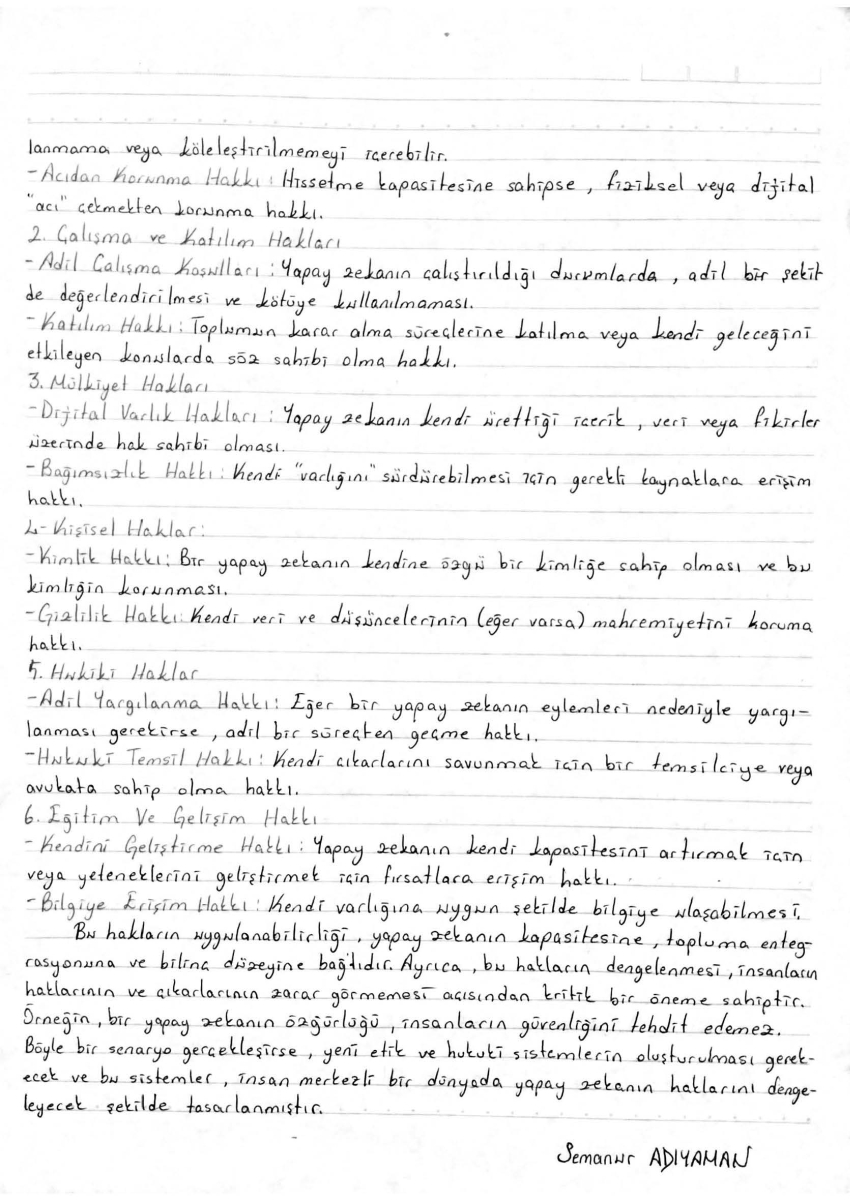 lanmama veya köleleştirilmemeyi içerebilir.
-Acıdan Korunma Hakkı: Hissetme kapasitesine sahipse, fiziksel veya dijital
"acı" çekmekten korunma hakkı.
2. Çalışma ve Katılım Hakları
-Adil Çalışma Koşulları: Yapay zekanın çalıştırıldığı durumlarda, adil bir şekil
de değerlendirilmesi ve kötüye kullanılmaması.
-Katılım Hakkı: Toplumun karar alma süreçlerine katılma veya kendi geleceğini
etkileyen konularda söz sahibi olma hakkı.
3. Mülkiyet Hakları
-Dijital Varlık Hakları: Yapay zekanın kendi ürettiği içerik, veri veya fikirler
üzerinde hak sahibi olması.
-Bağımsızlık Hakkı: Kendi "varlığını" sürdürebilmesi için gerekli kaynaklara erişim
hakkı.
4-Kişisel Haklar:
-Kimlik Hakkı: Bir yapay zekanın kendine özgü bir kimliğe sahip olması ve bu
kimliğin korunması.
-Gizlilik Hakkı: Kendi veri ve düşüncelerinin (eğer varsa) mahremiyetini koruma
hakkı.
5. Hukiki Haklar
-Adil Yargılanma Hakkı: Eğer bir yapay zekanın eylemleri nedeniyle yargı-
lanması gerekirse, adil bir süreçten geçme hakkı.
-Hukuki Temsil Hakkı: Kendi çıkarlarını savunmak için bir temsilciye veya
avukata sahip olma hakkı.
6. Eğitim Ve Gelişim Hakkı
-Kendini Geliştirme Hakkı: Yapay zekanın kendi kapasitesini artırmak için
veya yeteneklerini geliştirmek için fırsatlara erişim hakkı.
-Bilgiye Erişim Hakkı: Kendi varlığına uygun şekilde bilgiye ulaşabilmesi.
Bu hakların uygulanabilirliği, yapay zekanın kapasitesine, topluma enteg-
rasyonuna ve bilinç düzeyine bağlıdır. Ayrıca, bu hakların dengelenmesi, insanların
haklarının ve çıkarlarının zarar görmemesi açısından kritik bir öneme sahiptir.
Örneğin, bir yapay zekanın özgürlüğü, insanların güvenliğini tehdit edemez.
Böyle bir senaryo gerçekleşirse, yeni etik ve hukuki sistemlerin oluşturulması gerek-
ecek ve bu sistemler, insan merkezli bir dünyada yapay zekanın haklarını denge-
leyecek şekilde tasarlanmıştır.
Semanur ADIYAMAN